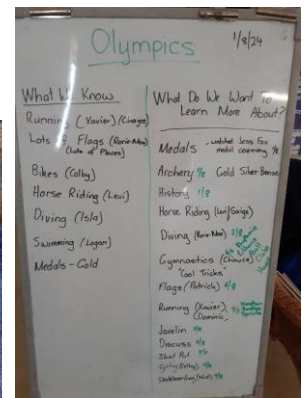 Olympics
1/8/24
What We Know
Running (Xavier) (Chayce)
Lots of Flags (Rorie-Mae)
(Lots of Places)
Bikes (Colby)
Horse Riding (Levi)
Diving (Isla)
Swimming (Logan)
Medals - Gold
What Do We Want To
Learn More About?
Medals - watched Jess Fox
medal ceremony 1/8
Archery 7/8 Gold Silver Bronze
History 1/8
Horse Riding (Levi/Saige)
Diving (Rorie-Mae) 2/8
Gymnastics (Chayce)
"Cool Tricks"
Rhythmic
Ribbons
Ball
Clubs
Hoop
Flags (Patrick)
Running (Xavier),
Dominic,
Javelin
Discuss
Shot Put
Cycling (Colby)
Skateboarding